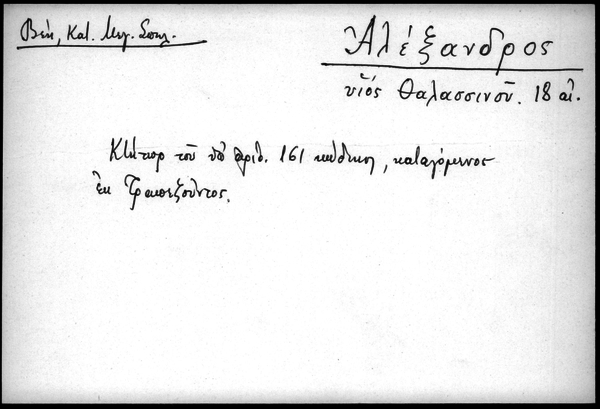 Βέη, Κατ. Μεγ. Σπηλ.
Ἀλέξανδρος
υἱός Θαλασσινοῦ. 18 αἰ.
Κτήτωρ τοῦ ὑπ' ἀριθ. 161 κώδικος, καταγόμενος
ἐκ Τραπεζοῦντος.